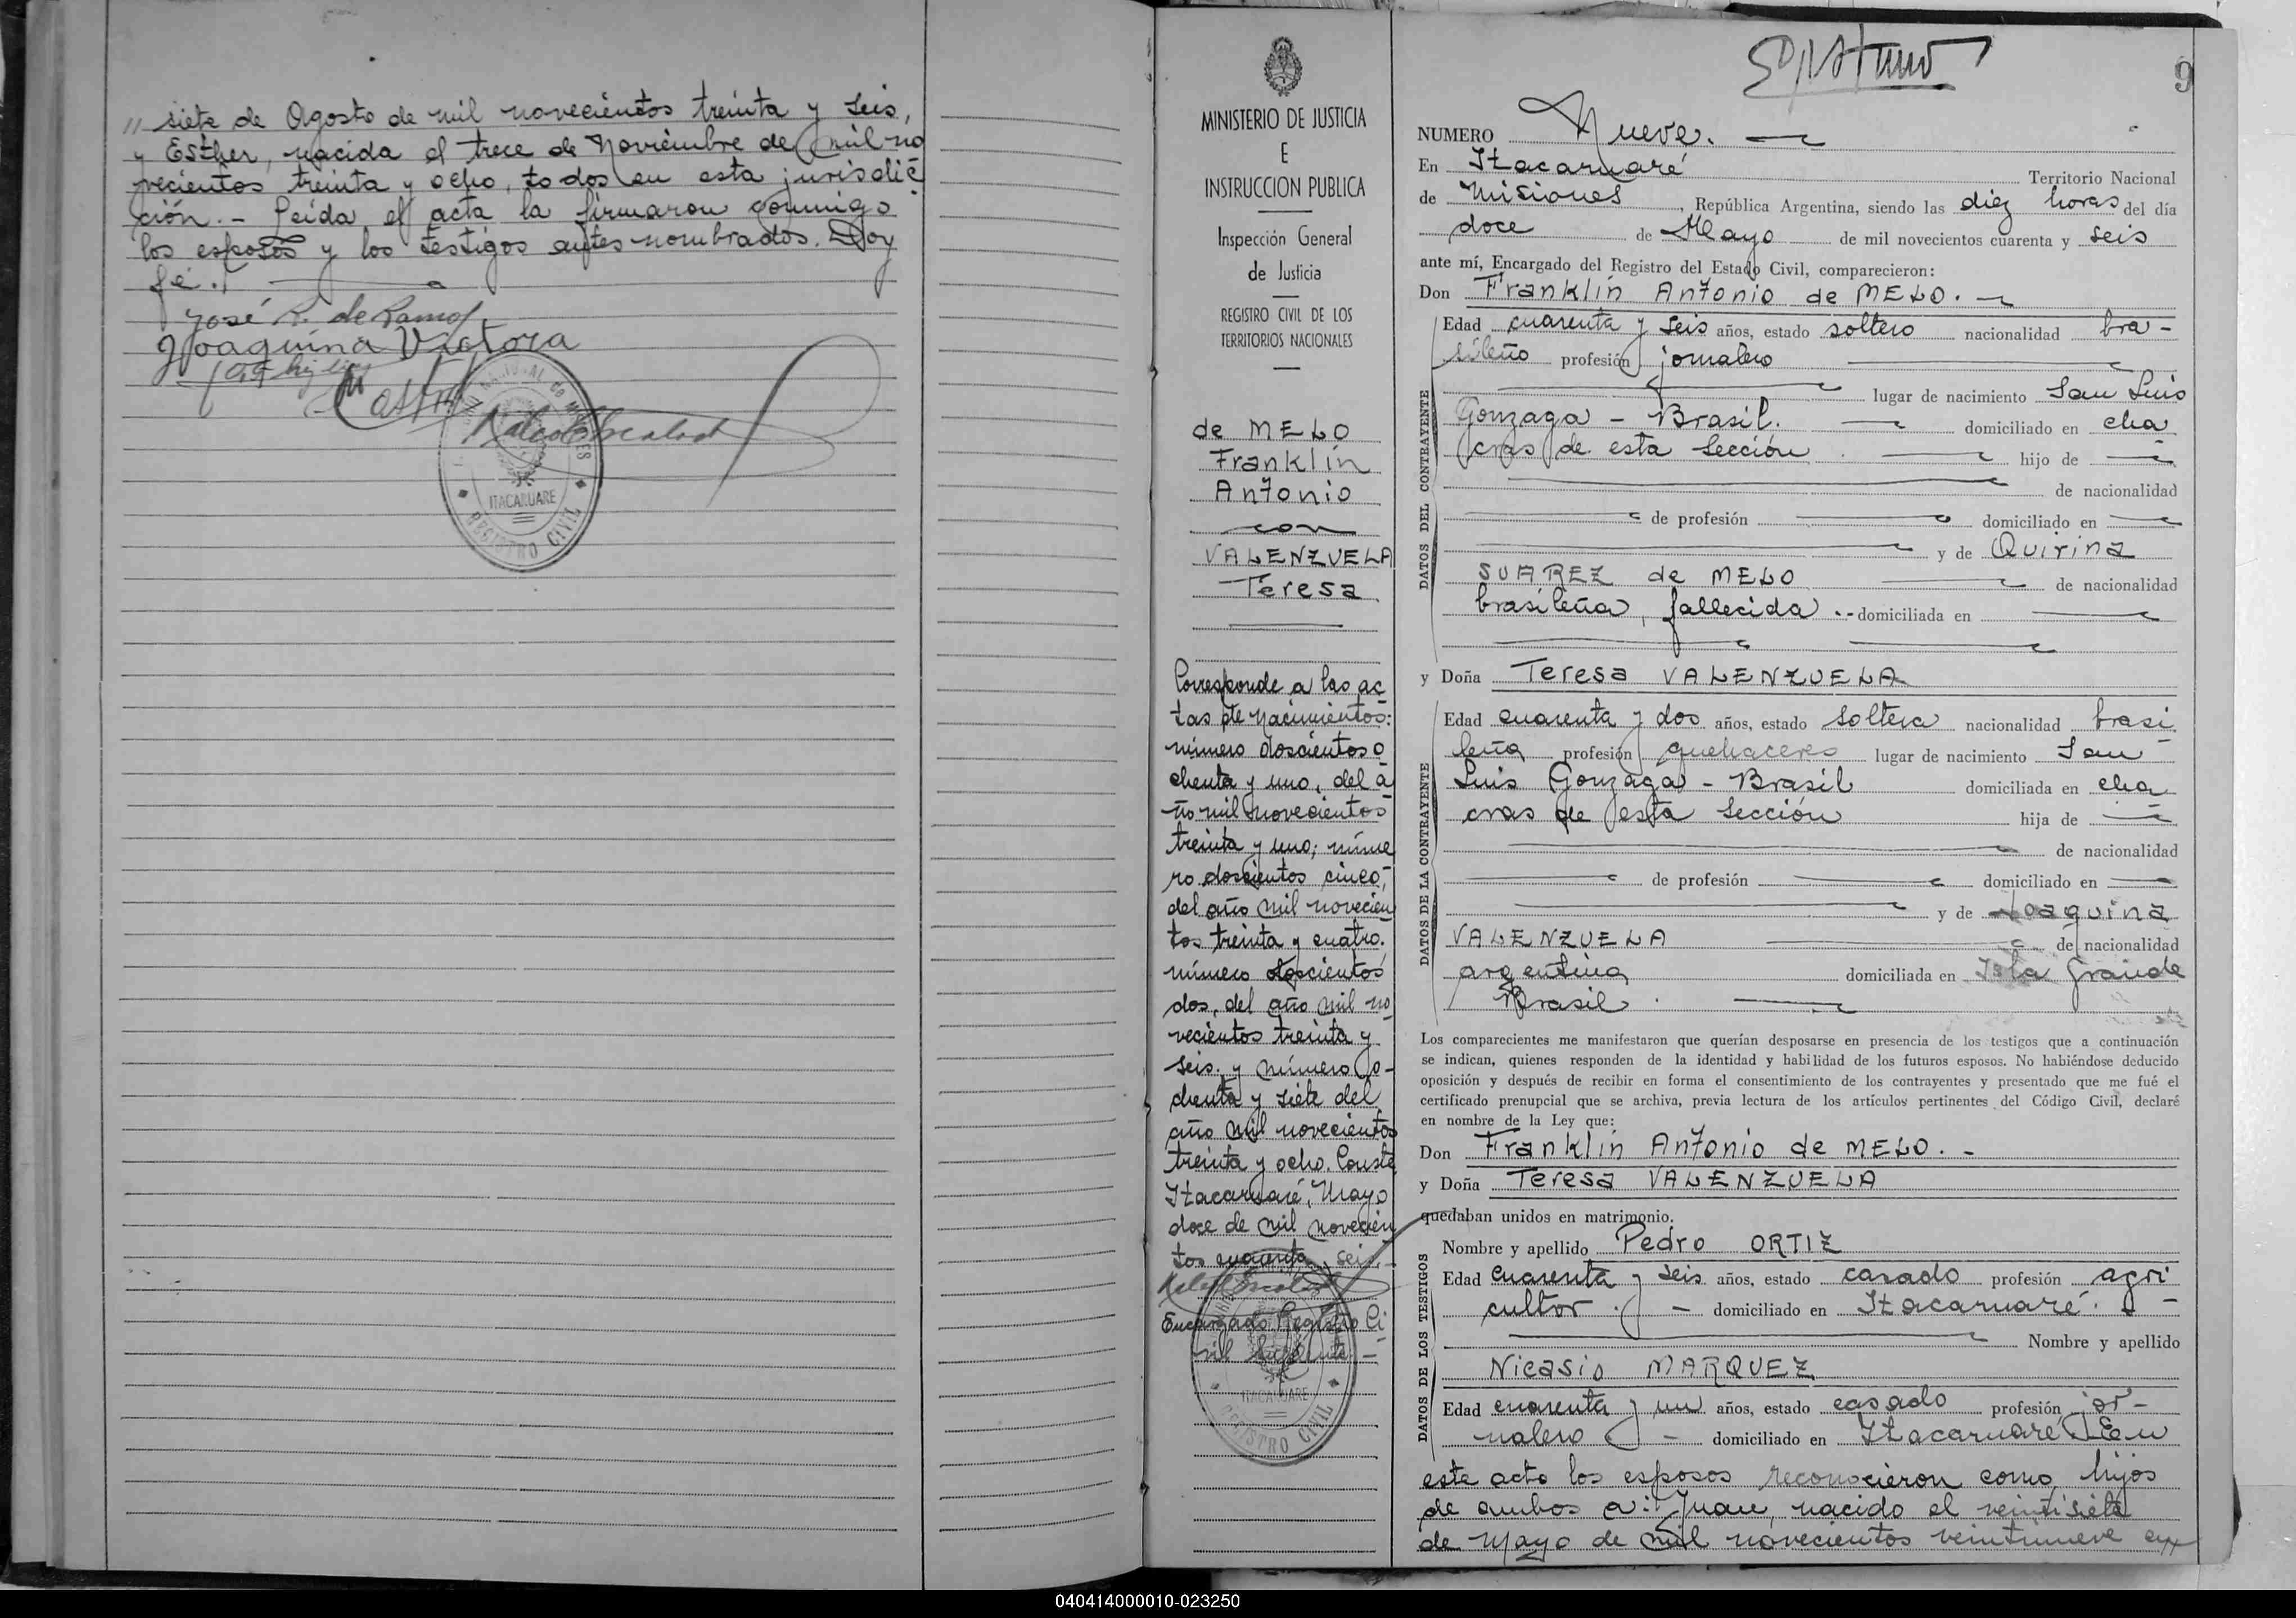 " siete de Agosto de mil novecientos treinta y seis,
y Esther, nacida el trece de Noviembre de mil no
vecientos treinta y ocho, todos en esta jurisdic
ción. - Leída el acta la firmaron conmigo
los esposos y los testigos antes nombrados. Doy
fé. -
José R. de Ramos
Joaquina Victora
ITACARUARE
REGISTRO CIVIL
MINISTERIO DE JUSTICIA
E
INSTRUCCION PUBLICA
Inspección General
de Justicia
REGISTRO CIVIL DE LOS
TERRITORIOS NACIONALES
de MELO
Franklin
Antonio
con
VALENZUELA
Teresa
Corresponde a las ac
tas de nacimientos:
número doscientos o
chenta y uno, del a
ño mil novecientos
treinta y uno; núme
ro doscientos cinco,
del año mil novecien
tos treinta y cuatro.
número doscientos
dos, del año mil no
vecientos treinta y
seis. y número o-
chenta y siete del
año mil novecientos
treinta y ocho. Conste
Itacaruaré, Mayo
doce de mil novecien
tos cuarenta seis.
Encargado Registro Ci
vil
ITACARUARE
REGISTRO CIVIL
9
NUMERO Nueve.
En Itacaruaré Territorio Nacional
de Misiones, República Argentina, siendo las diez horas del día
doce de Mayo de mil novecientos cuarenta y seis
ante mí, Encargado del Registro del Estado Civil, comparecieron:
Don Franklin Antonio de MELO.
DATOS DEL CONTRAYENTE
Edad cuarenta y seis años, estado soltero nacionalidad bra-
sileño profesión jornalero
lugar de nacimiento San Luis
Gonzaga - Brasil. domiciliado en cha
cras de esta Sección hijo de
de nacionalidad
de profesión domiciliado en
y de Quirina
SUAREZ de MELO de nacionalidad
brasileña, fallecida .- domiciliada en
y Doña Teresa VALENZUELA
DATOS DE LA CONTRAYENTE
Edad cuarenta y dos años, estado soltera nacionalidad brasi
leña profesión quehaceres lugar de nacimiento San
Luis Gonzaga - Brasil domiciliada en cha
cras de esta Sección hija de
de nacionalidad
de profesión domiciliado en
y de Joaquina
VALENZUELA de nacionalidad
argentina domiciliada en Isla Grande
Brasil.
Los comparecientes me manifestaron que querían desposarse en presencia de los testigos que a continuación
se indican, quienes responden de la identidad y habilidad de los futuros esposos. No habiéndose deducido
oposición y después de recibir en forma el consentimiento de los contrayentes y presentado que me fué el
certificado prenupcial que se archiva, previa lectura de los artículos pertinentes del Código Civil, declaré
en nombre de la Ley que:
Don Franklin Antonio de MELO. -
y Doña Teresa VALENZUELA
quedaban unidos en matrimonio.
DATOS DE LOS TESTIGOS
Nombre y apellido Pedro ORTIZ
Edad cuarenta y seis años, estado casado profesión agri
cultor. - domiciliado en Itacaruaré. -
Nombre y apellido
Nicasio MARQUEZ
Edad cuarenta y un años, estado casado profesión jor-
nalero - domiciliado en Itacaruaré. En
este acto los esposos reconocieron como hijos
de ambos a: Juan, nacido el veintisiete
de Mayo de mil novecientos veintinueve
040414000010-023250